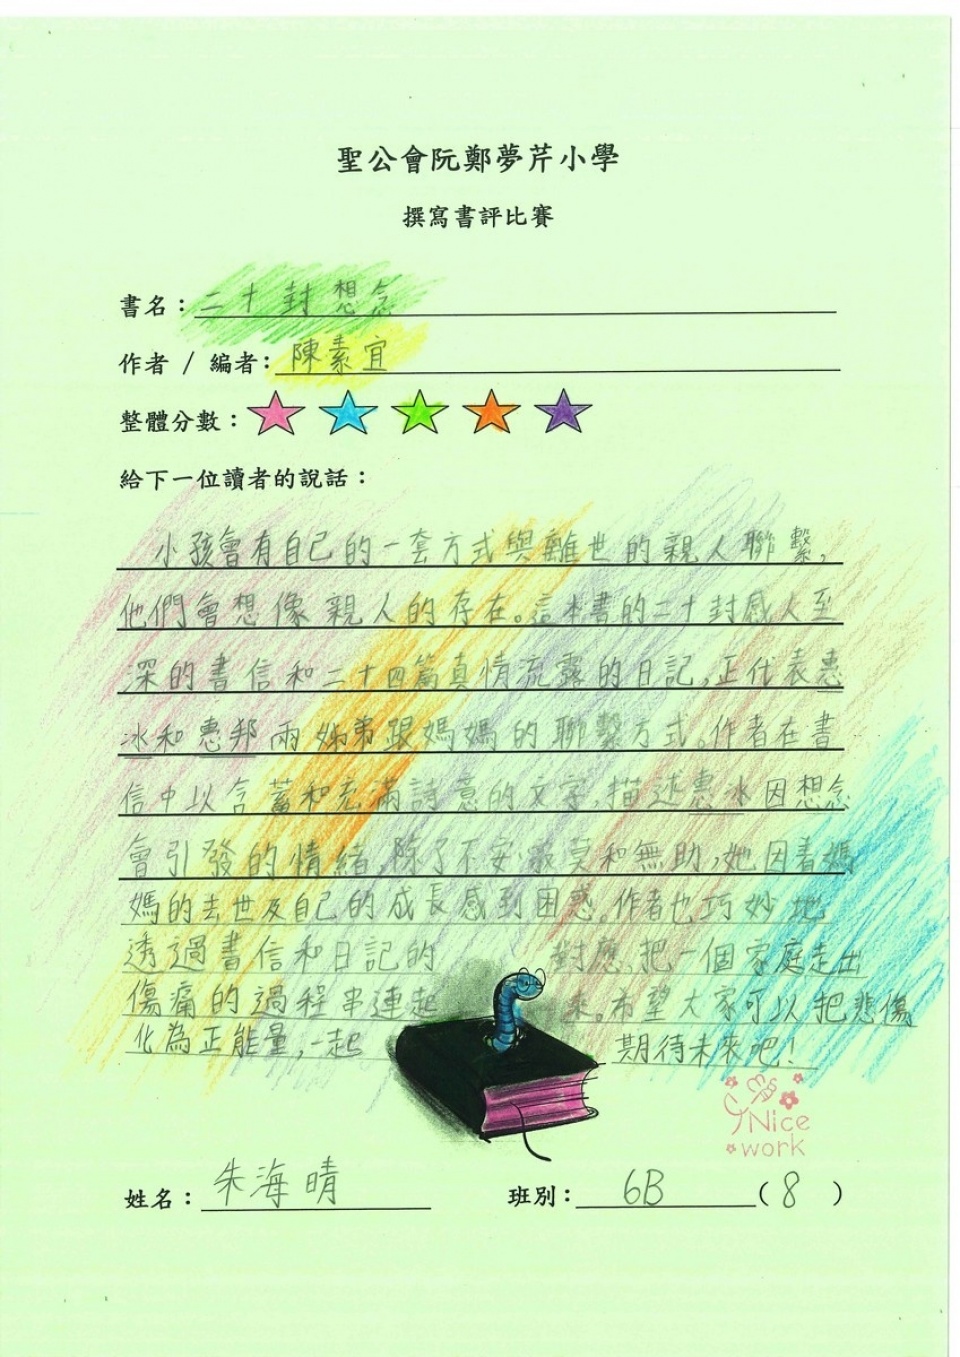 聖公會阮鄭夢芹小學
撰寫書評比賽
書名：二十封想念
作者 / 編者：陳素宜
整體分數：
給下一位讀者的說話：
小孩會有自己的一套方式與離世的親人聯繫，
他們會想像親人的存在。這本書的二十封感人至
深的書信和二十四篇真情流露的日記，正代表惠
冰和惠邦兩姊弟跟媽媽的聯繫方式。作者在書
信中以含蓄和充滿詩意的文字，描述惠冰因想念
會引發的情緒，除了不安、寂莫和無助，她因着媽
媽的去世及自己的成長感到困惑。作者也巧妙地
透過書信和日記的對應，把一個家庭走出
傷痛的過程串連起來。希望大家可以把悲傷
化為正能量，一起期待未來吧！
Nice
work
姓名：朱海晴
班別：6B（8）